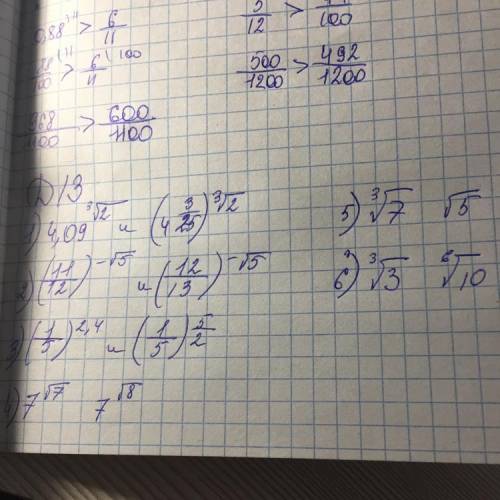 0,88 > 6/11
88/100 > 6/11
968/1100 > 600/1100
5/12 > /100
500/1200 > 492/1200
Д/З
1) 4,09^∛2 и (4 3/25)^∛2
2) (11/12)^-√5 и (12/13)^-√5
3) (1/5)^2,4 и (1/5)^5/2
4) 7^√7 7^√8
5) ∛7 √5
6) ∛3 ⁶√10